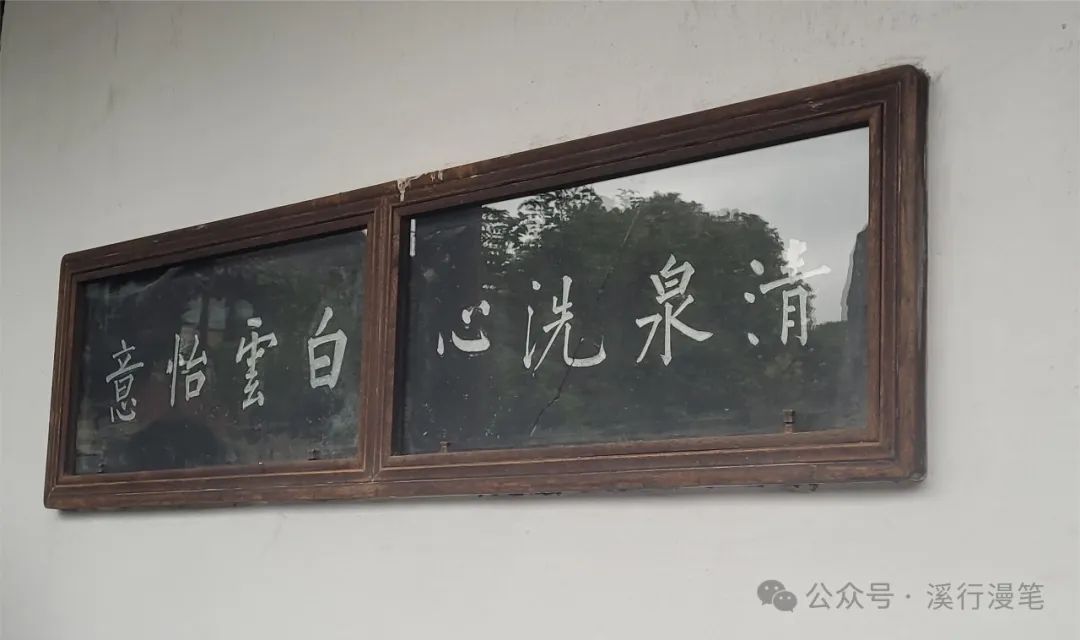 清泉洗心
白雲怡意
公众号·溪行漫笔